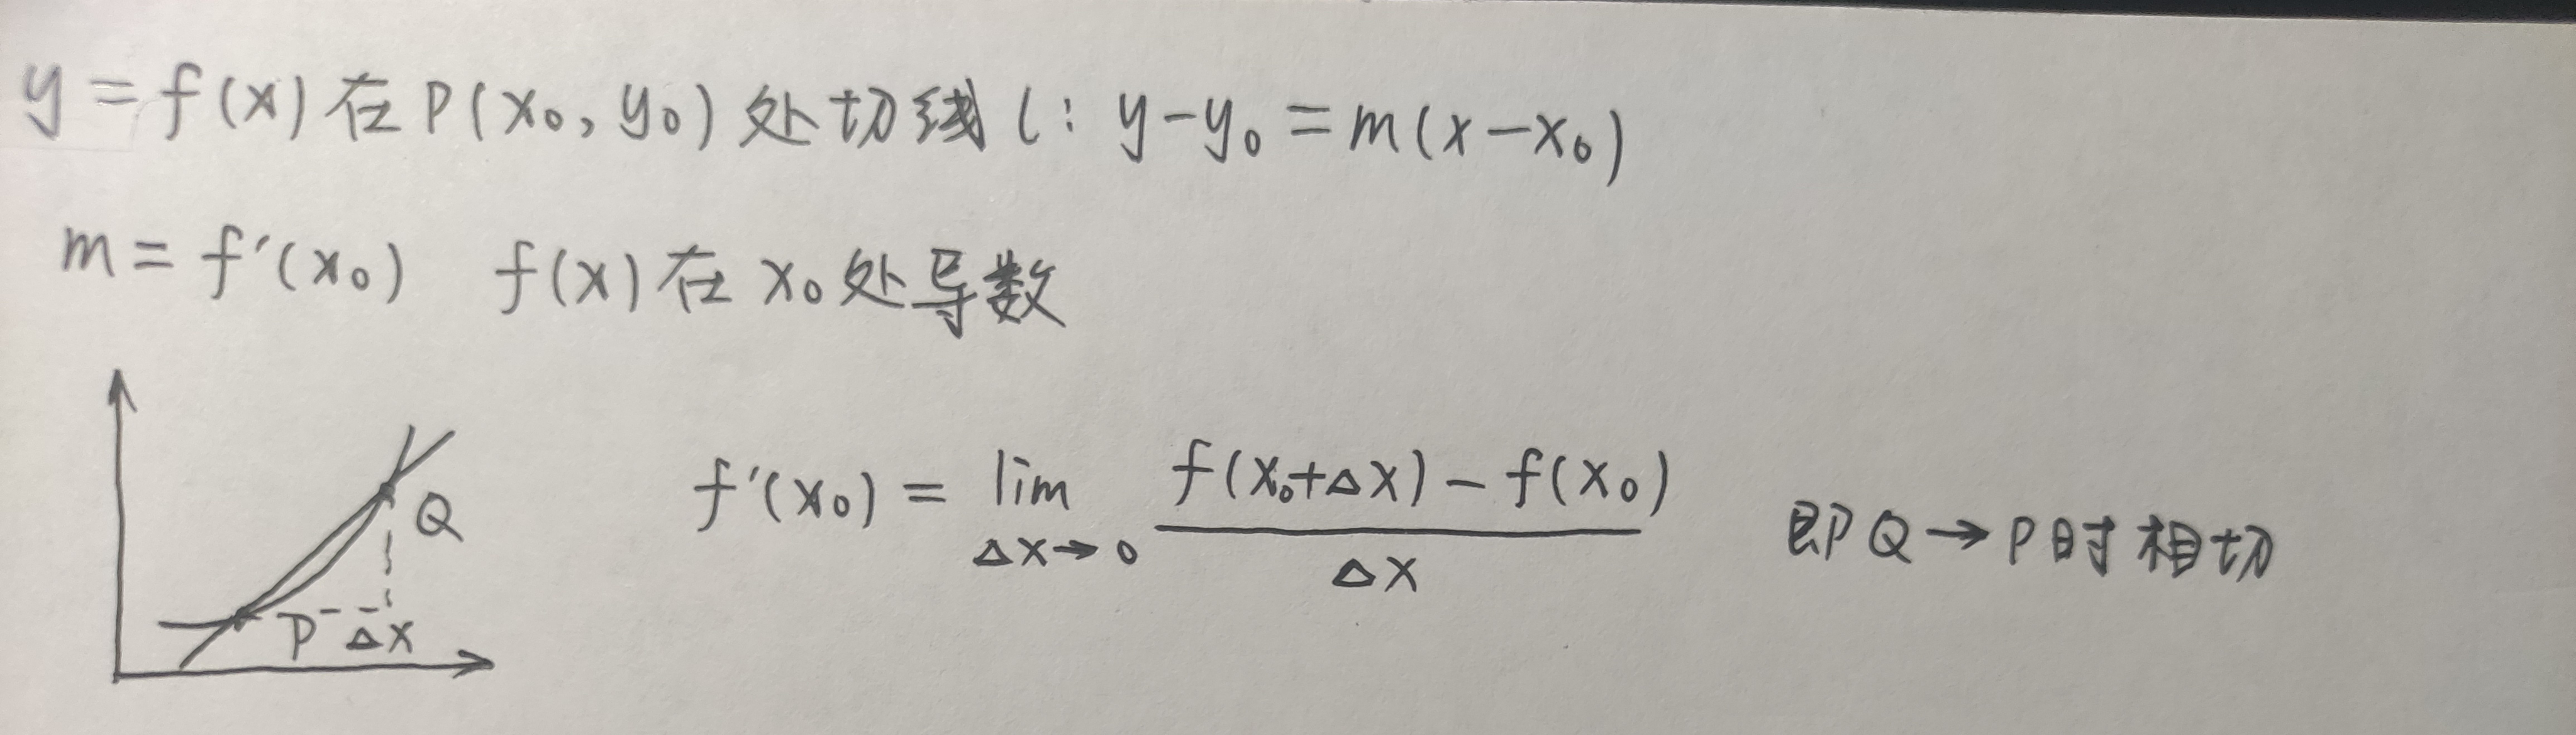 y = f(x) 在 P(x₀, y₀) 处切线 l: y-y₀ = m(x-x₀)
m = f'(x₀) f(x) 在 x₀ 处导数
Q
P Δx
f'(x₀) = lim Δx→0 (f(x₀+Δx) - f(x₀)) / Δx 即Q→P时相切